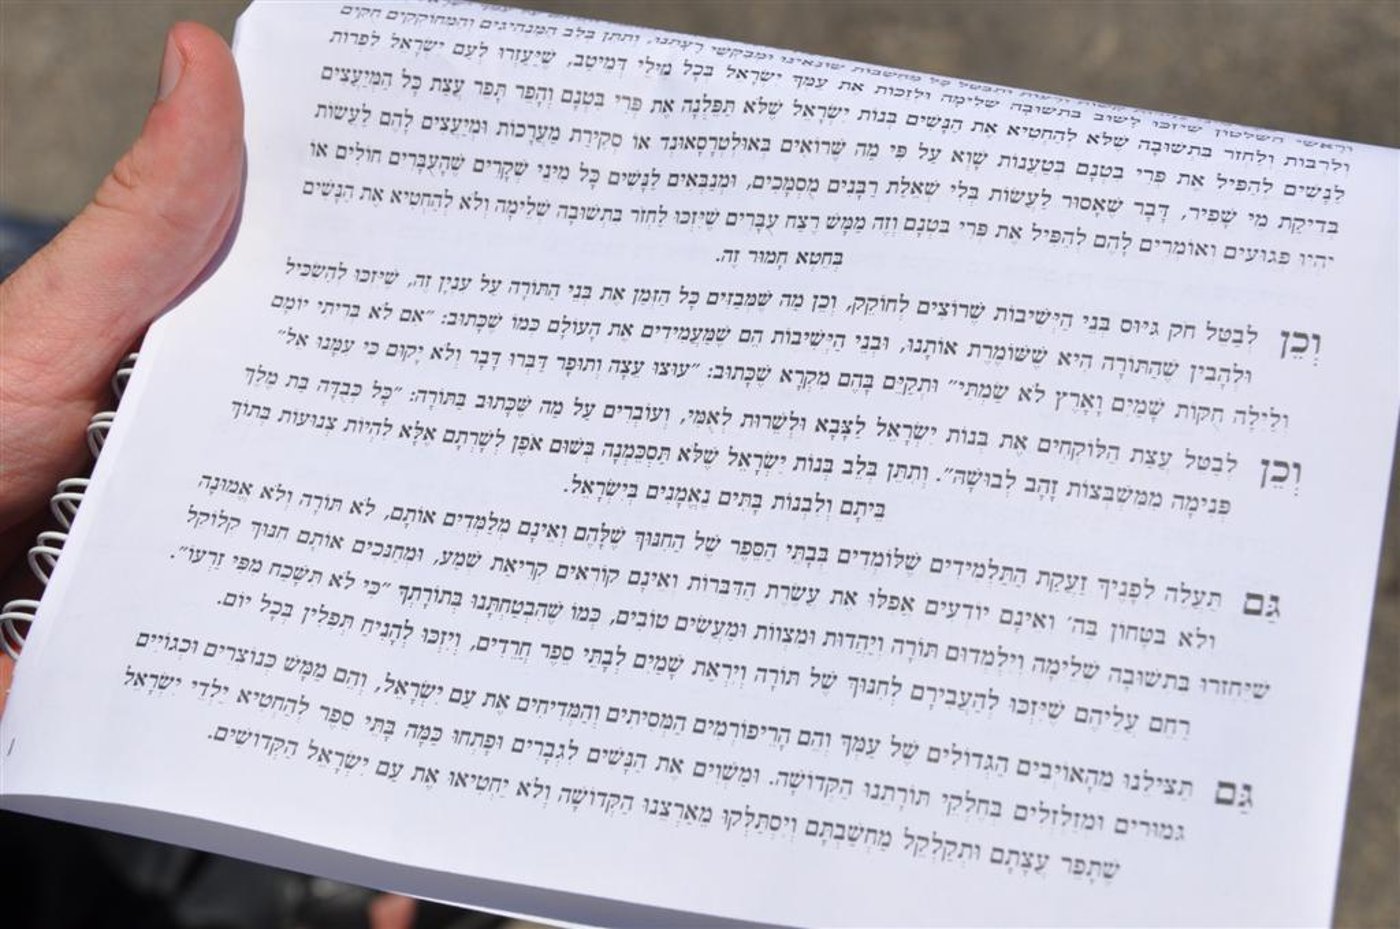 וראשי השלטון שיזכו לשוב בתשובה שלימה ולזכות את עמך ישראל בכל מילי דמיטב, שיעזרו לעם ישראל לפרות
ולרבות ולחזור בתשובה שלא להחטיא את הנשים בנות ישראל שלא תפלנה את פרי בטנם והפר תפר עצת כל המיעצים
לנשים להפיל את פרי בטנם בטענות שוא על פי מה שרואים באולטרסאונד או סקירת מערכות ומיעצים להם לעשות
בדיקת מי שפיר, דבר שאסור לעשות בלי שאלת רבנים מסמכים, ומנבאים לנשים כל מיני שקרים שהעברים חולים או
יהיו פגועים ואומרים להם להפיל את פרי בטנם וזה ממש רצח עברים שיזכו לחזור בתשובה שלימה ולא להחטיא את הנשים
בחטא חמור זה.
וְכֵן לבטל חק גיוס בני הישיבות שרוצים לחוקק, וכן מה שמבזים כל הזמן את בני התורה על ענין זה, שיזכו להשכיל
ולהבין שהתורה היא ששומרת אותנו, ובני הישיבות הם שמעמידים את העולם כמו שכתוב: ״אם לא בריתי יומם
ולילה חקות שמים וארץ לא שמתי״ ותקים בהם מקרא שכתוב: ״עוצו עצה ותופר דברו דבר ולא יקום כי עמנו אל״
וְכֵן לבטל עצת הלוקחים את בנות ישראל לצבא ולשרות לאמי, ועוברים על מה שכתוב בתורה: ״כל כבדה בת מלך
פנימה ממשבצות זהב לבושה״. ותתן בלב בנות ישראל שלא תסכמנה בשום אפן לשרתם אלא להיות צנועות בתוך
ביתם ולבנות בתים נאמנים בישראל.
גַּם תעלה לפניך זעקת התלמידים שלומדים בבתי הספר של החנוך שלהם ואינם מלמדים אותם, לא תורה ולא אמונה
ולא בטחון בה׳ ואינם יודעים אפלו את עשרת הדברות ואינם קוראים קריאת שמע, ומחנכים אותם חנוך קלוקל
שיחזרו בתשובה שלימה וילמדום תורה ויהדות ומצוות ומעשים טובים, כמו שהבטחתנו בתורתך ״כי לא תשכח מפי זרעו״.
רחם עליהם שיזכו להעבירם לחנוך של תורה ויראת שמים לבתי ספר חרדים, ויזכו להניח תפלין בכל יום.
גַּם תצילנו מהאויבים הגדולים של עמך והם הריפורמים המסיתים והמדיחים את עם ישראל, והם ממש כנוצרים וכגויים
גמורים ומזלזלים בחלקי תורתנו הקדושה. ומשוים את הנשים לגברים ופתחו כמה בתי ספר להחטיא ילדי ישראל
שתפר עצתם ותקלקל מחשבתם ויסתלקו מארצנו הקדושה ולא יחטיאו את עם ישראל הקדושים.